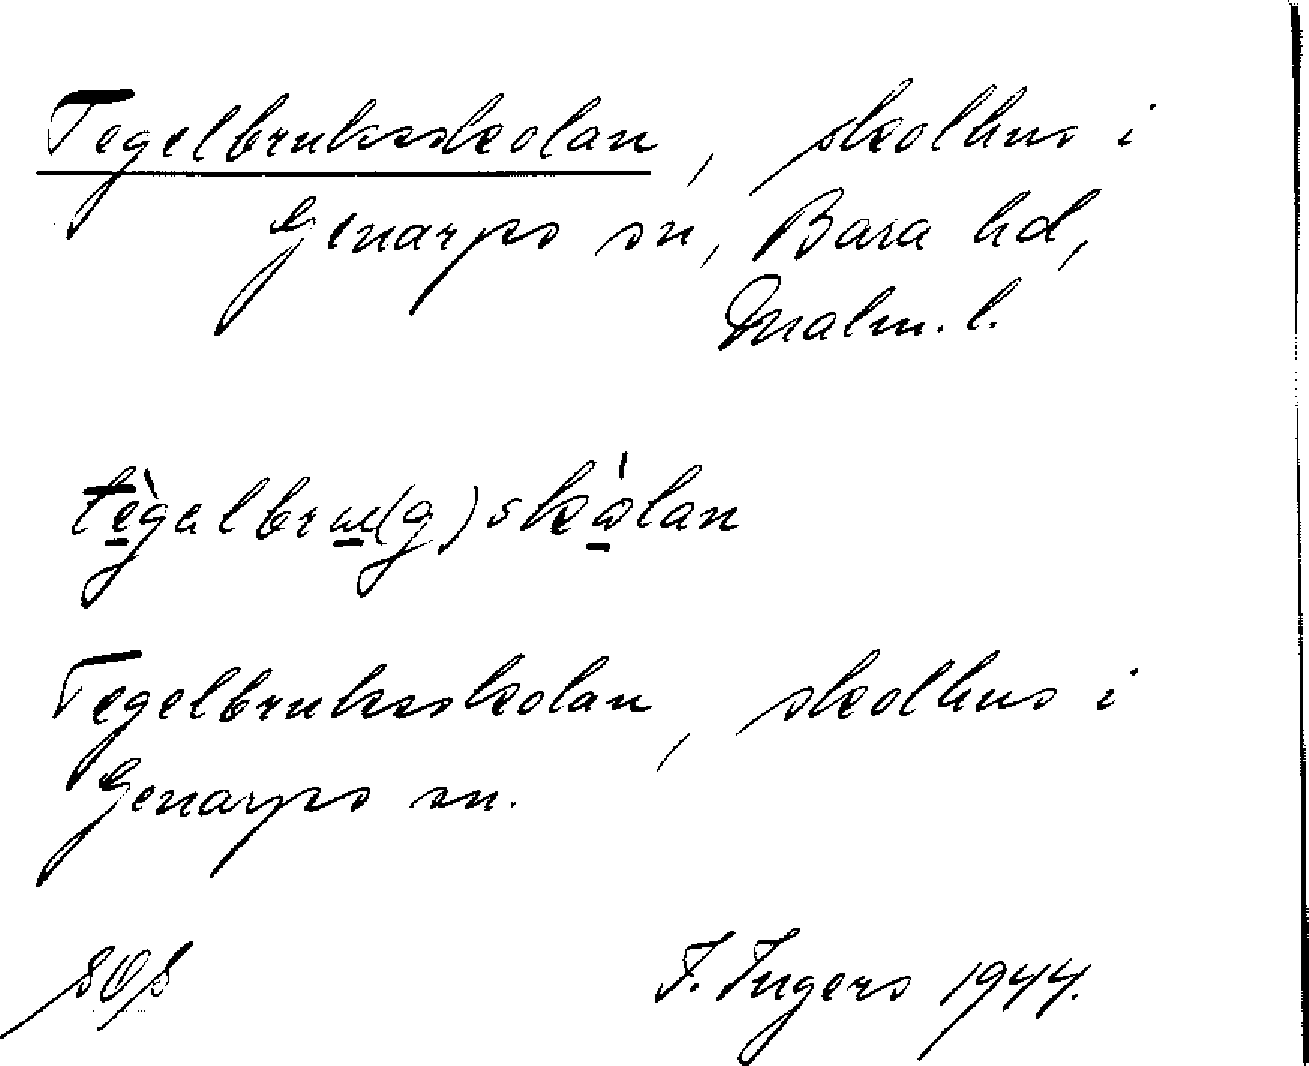 Tegelbruksskolan, skolhus i
Genarps sn, Bara hd,
Malm. l.
tègalbru(g)skólan
Tegelbruksskolan, skolhus i
Genarps sn.
I. Ingers 1944.